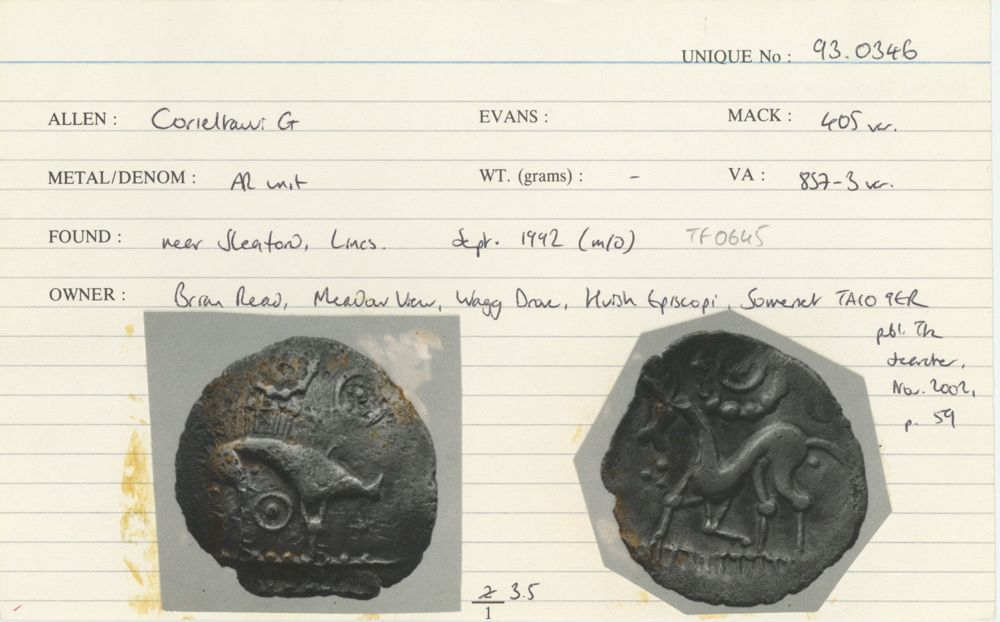 UNIQUE No : 93.0346
ALLEN : Corieltauvi G EVANS : MACK : 405 var.
METAL/DENOM : AR unit WT. (grams) : - VA : 857-3 var.
FOUND : near Sleaford, Lincs. Sept. 1992 (m/d) TF0645
OWNER : Brian Read, Meadow View, Wagg Drove, Huish Episcopi, Somerset TA10 9ER
publ. The
Searcher,
Nov. 2002,
p. 59
2 3.5
1